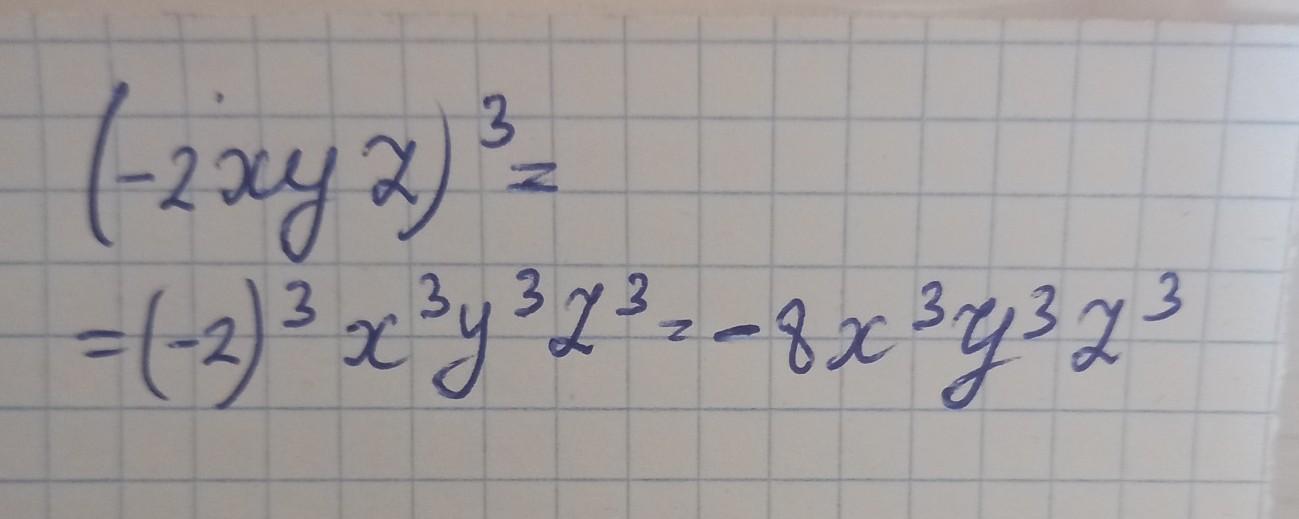 (-2xyz)³=
=(-2)³x³y³z³=-8x³y³z³